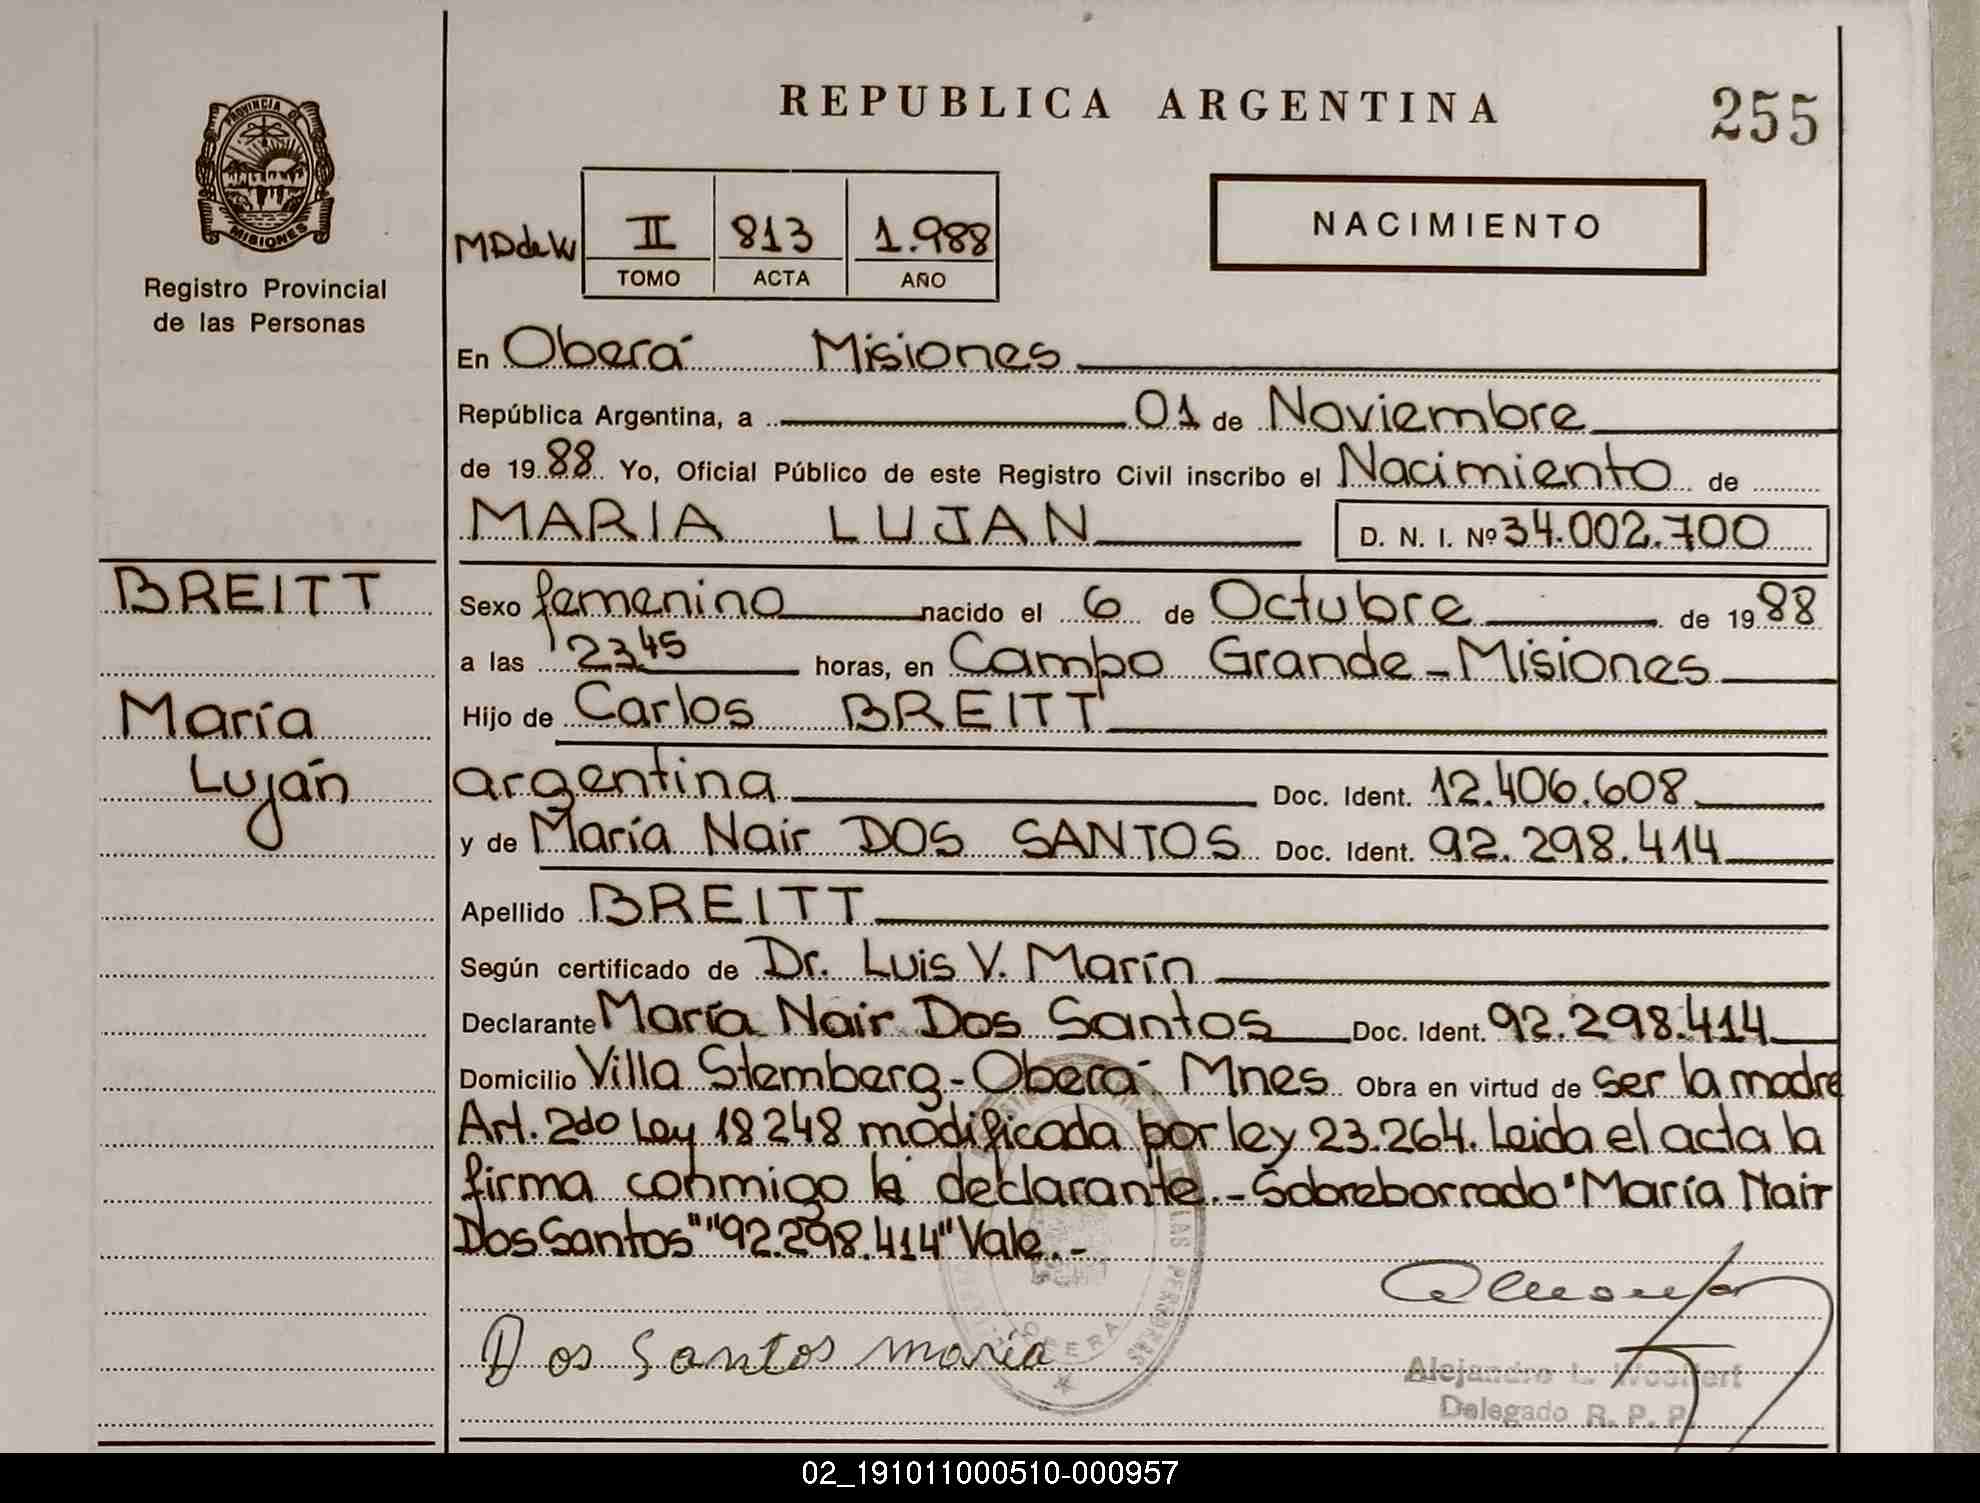 REPUBLICA ARGENTINA
255
PROVINCIA DE
MISIONES
Registro Provincial
de las Personas
MDdeW
II 813 1.988
TOMO ACTA AÑO
NACIMIENTO
En Oberá Misiones
República Argentina, a 01 de Noviembre
de 1988 Yo, Oficial Público de este Registro Civil inscribo el Nacimiento de
MARIA LUJAN D. N. I. Nº 34.002.700
BREITT
María
Luján
Sexo femenino nacido el 6 de Octubre de 1988
a las 23,45 horas, en Campo Grande - Misiones
Hijo de Carlos BREITT
argentina Doc. Ident. 12.406.608
y de María Nair DOS SANTOS Doc. Ident. 92.298.414
Apellido BREITT
Según certificado de Dr. Luis V. Marín
Declarante María Nair Dos Santos Doc. Ident. 92.298.414
Domicilio Villa Stemberg - Oberá Mnes Obra en virtud de ser la madre
Art. 2do Ley 18248 modificada por ley 23.264. Leida el acta la
firma conmigo la declarante.- Sobreborrado "María Nair
Dos Santos" "92.298.414" Vale.-
Dos Santos maría
Alejandro L.
Delegado R. P. P.
02_191011000510-000957